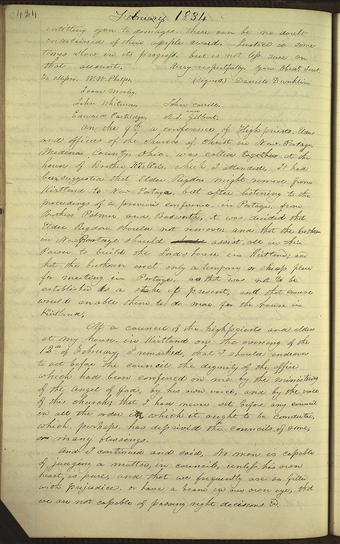 424
February 1834
entitling you to damages. There can be no doubt
entertained of their ample award. Justice is some
times slow in its progress, but is not less sure on
that account. Very respectfully, Your Obedt Servt
To Messrs. W. W. Phelps (signed) Daniel Dunklin
Isaac Morley
John Whitmer John Corrill
Edward Partridge A. S. Gilbert
On the 9th a conference of High priests, Elders
and officers of the church of Christ in New Portage
Medina County Ohio, was called together at the
house of brother which I attended, it had
been suggested that Elder Rigdon might remove from
Kirtland to New Portage, but after listening to the
proceedings of a previous conference, in Portage, from
brother Palmer and Bosworth, it was decided that
Elder Rigdon should not remove and that the brethren
in New Portage should assist all in their
Power to build the Lords house in Kirtland, and
that the brethren erect only a temporary or cheap place
for meeting in Portage, as that was not to be
established as a stake at present, and that course
would enable them to do more for the house in
Kirtland,
At a council of the high priests and elders
at my house in Kirtland on the evening of the
12th of February I remarked, that I should endeavor
to set before the council the dignity of the office
which had been conferred on me by the ministering
of the Angel of God, by his own voice, and by the voice
of this church; that I had never set before any council
in all the order in which it ought to be conducted,
which, perhaps, has deprived the councils of some
or many blessings.
And I continued and said, No man is capable
of judging a matter, in council, unless his own
heart is pure, and that we frequently are so filled
with prejudice, or have a beam in our own eye, that
we are not capable of passing right decisions &c